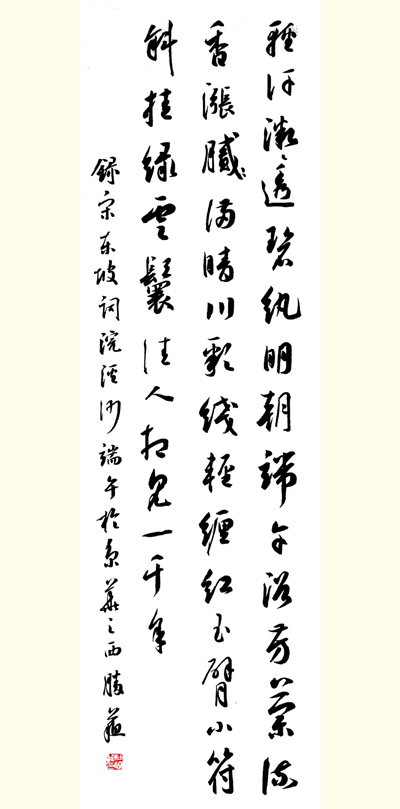 輕汗微々透碧紈明朝端午浴芳蘭流
香漲膩滿晴川彩綫輕纏紅玉臂小符
斜挂綠雲鬟佳人相見一千年
錄宋東坡詞浣溪沙端午於京華之西勝